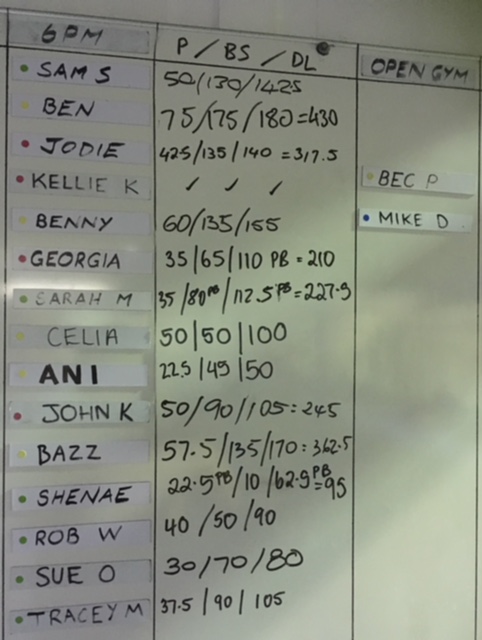 6PM P / BS / DL OPEN GYM
SAM S 50/130/142.5
BEN 75/175/180=430
JODIE 42.5/135/140 =317.5
KELLIE K ✓ ✓ ✓ BEC P
BENNY 60/135/155 MIKE D
GEORGIA 35/65/110 PB = 210
SARAH M 35/80PB/112.5PB=227.5
CELIA 50/50/100
ANI 22.5/45/50
JOHN K 50/90/105=245
BAZZ 57.5/135/170=362.5
SHENAE 22.5PB/10/62.5PB=95
ROB W 40/50/90
SUE O 30/70/80
TRACEY M 37.5/90/105